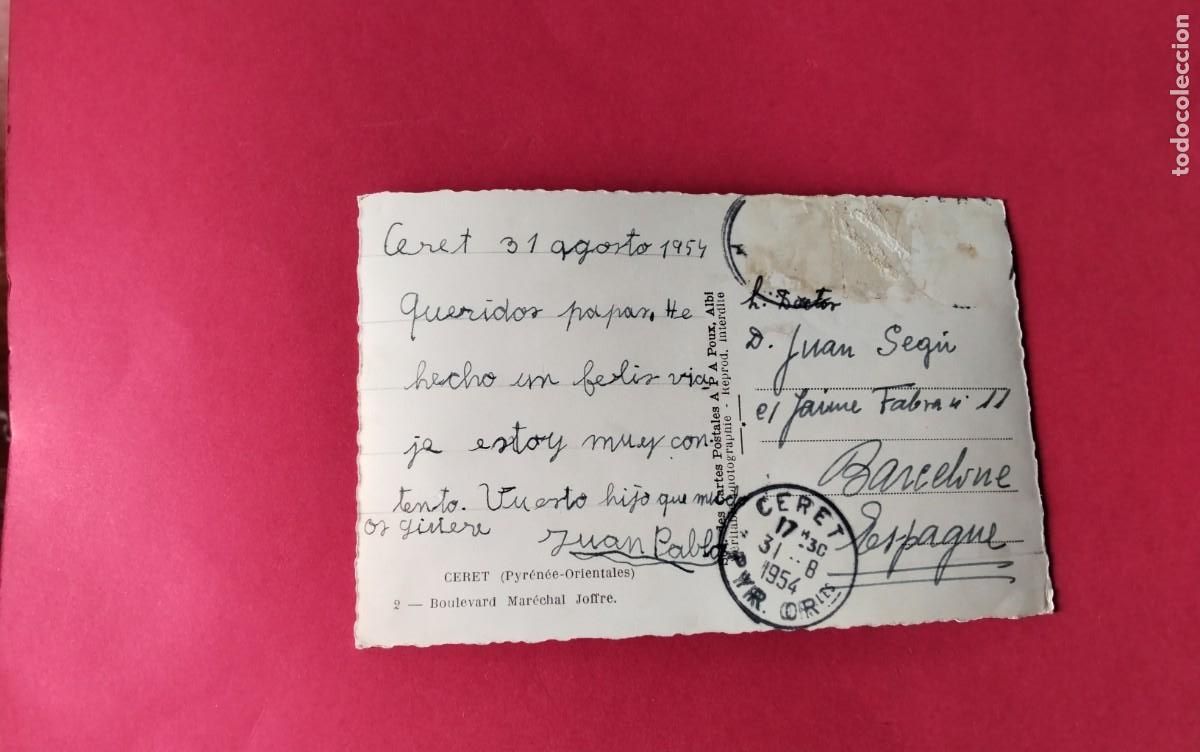 Ceret 31 agosto 1954
Queridos papas. He
hecho un felis via
ja estoy muy con
tento. Vuesto hijo que mucho
os quiere
Juan Pablo
CERET (Pyrénée-Orientales)
2 — Boulevard Maréchal Joffre.
des Cartes Postales A P A Poux, Albi
Véritable Photographie - Reprod. interdite
Doctor
D. Juan Segú
Jaime Fabra 11
Barcelone
Espagne
CERET
17 H30
31 - 8
1954
PYR. OR
todocoleccion